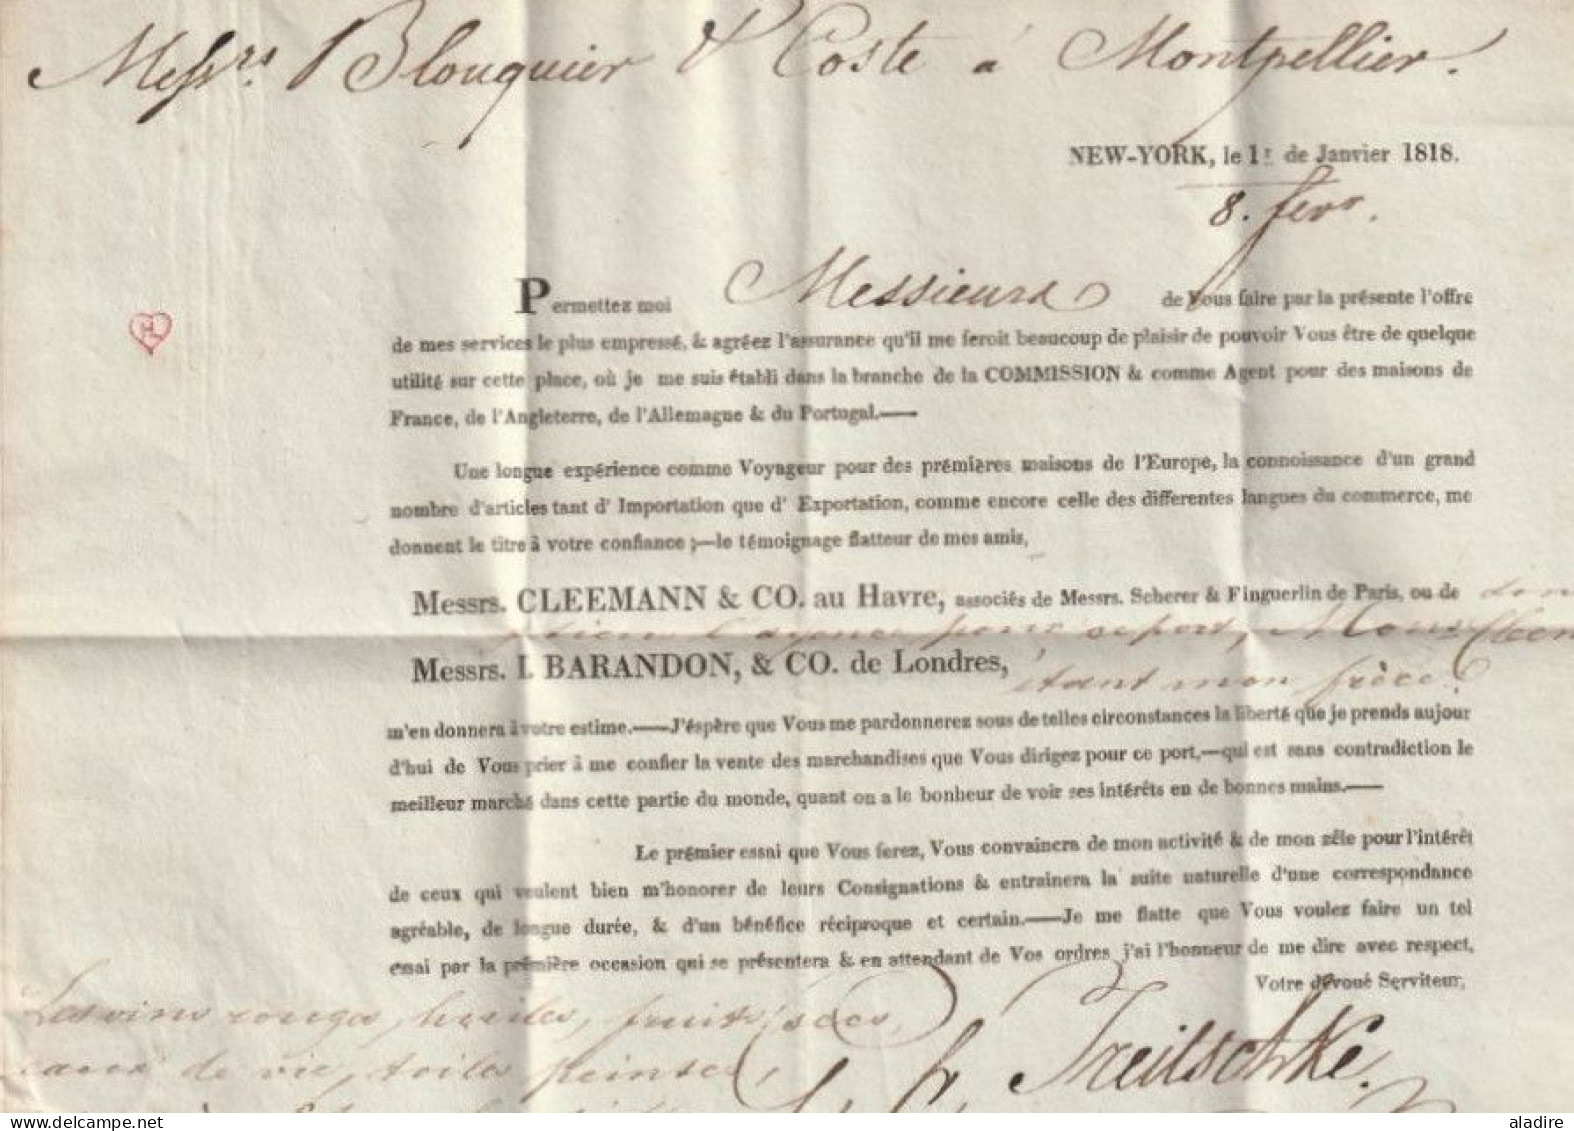 Messrs. Blouquier & Coste à Montpellier.
NEW-YORK, le 1r de Janvier 1818.
8. fevr.
HL
Permettez moi Messieurs de Vous faire par la présente l'offre
de mes services le plus empressé, & agréez l'assurance qu'il me feroit beaucoup de plaisir de pouvoir Vous être de quelque
utilité sur cette place, où je me suis établi dans la branche de la COMMISSION & comme Agent pour des maisons de
France, de l'Angleterre, de l'Allemagne & du Portugal.—
Une longue expérience comme Voyageur pour des prémières maisons de l'Europe, la connoissance d'un grand
nombre d'articles tant d' Importation que d' Exportation, comme encore celle des differentes langues du commerce, me
donnent le titre à votre confiance ;—le témoignage flatteur de mes amis,
Messrs. CLEEMANN & CO. au Havre, associés de Messrs. Scherer & Finguerlin de Paris, ou de
l'agence pour ce port,
Messrs. I. BARANDON, & CO. de Londres,
étant mon frère.
m'en donnera à votre estime.—J'éspère que Vous me pardonnerez sous de telles circonstances la liberté que je prends aujour
d'hui de Vous prier à me confier la vente des marchandises que Vous dirigez pour ce port,—qui est sans contradiction le
meilleur marché dans cette partie du monde, quant on a le bonheur de voir ses intérêts en de bonnes mains.—
Le prémier essai que Vous ferez, Vous convaincra de mon activité & de mon zêle pour l'intérêt
de ceux qui veulent bien m'honorer de leurs Consignations & entrainera la suite naturelle d'une correspondance
agréable, de longue durée, & d'un bénéfice réciproque et certain.—Je me flatte que Vous voulez faire un tel
essai par la prémière occasion qui se présentera & en attendant de Vos ordres j'ai l'honneur de me dire avec respect,
Votre dévoué Serviteur,
Les vins rouges, huiles, fruits secs,
eaux de vie, toiles peintes,
Treitschke.
aladire